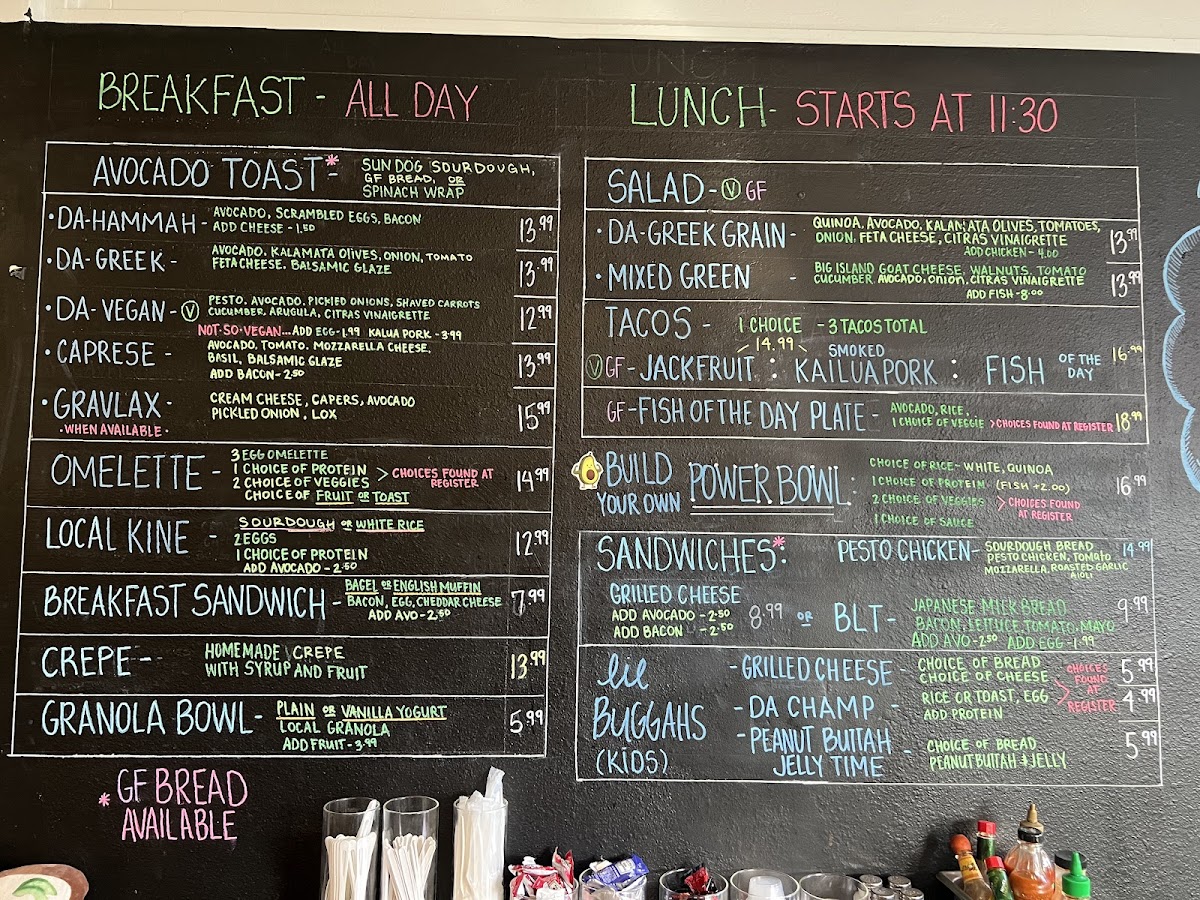 BREAKFAST - ALL DAY
AVOCADO TOAST* -
SUN DOG SOURDOUGH,
GF BREAD, OR
SPINACH WRAP
• DA-HAMMAH - AVOCADO, SCRAMBLED EGGS, BACON
ADD CHEESE - 1.50
13.99
• DA-GREEK - AVOCADO, KALAMATA OLIVES, ONION, TOMATO
FETA CHEESE, BALSAMIC GLAZE
13.99
• DA-VEGAN - V PESTO, AVOCADO, PICKLED ONIONS, SHAVED CARROTS
CUCUMBER, ARUGULA, CITRAS VINAIGRETTE
12.99
NOT-SO-VEGAN... ADD EGG - 1.99 KALUA PORK - 3.99
• CAPRESE - AVOCADO, TOMATO, MOZZARELLA CHEESE,
BASIL, BALSAMIC GLAZE
ADD BACON - 2.50
13.99
• GRAVLAX - CREAM CHEESE, CAPERS, AVOCADO
PICKLED ONION, LOX
• WHEN AVAILABLE •
15.99
OMELETTE - 3 EGG OMELETTE
1 CHOICE OF PROTEIN
2 CHOICE OF VEGGIES
> CHOICES FOUND AT
REGISTER
CHOICE OF FRUIT OR TOAST
14.99
LOCAL KINE - SOURDOUGH OR WHITE RICE
2 EGGS
1 CHOICE OF PROTEIN
ADD AVOCADO - 2.50
12.99
BREAKFAST SANDWICH - BAGEL OR ENGLISH MUFFIN
BACON, EGG, CHEDDAR CHEESE
ADD AVO - 2.50
7.99
CREPE - HOMEMADE CREPE
WITH SYRUP AND FRUIT
13.99
GRANOLA BOWL - PLAIN OR VANILLA YOGURT
LOCAL GRANOLA
ADD FRUIT - 3.99
5.99
* GF BREAD
AVAILABLE
LUNCH - STARTS AT 11:30
SALAD - V GF
• DA-GREEK GRAIN - QUINOA, AVOCADO, KALAMATA OLIVES, TOMATOES,
ONION, FETA CHEESE, CITRAS VINAIGRETTE
ADD CHICKEN - 4.00
13.99
• MIXED GREEN - BIG ISLAND GOAT CHEESE, WALNUTS, TOMATO
CUCUMBER, AVOCADO, ONION, CITRAS VINAIGRETTE
ADD FISH - 8.00
13.99
TACOS - 1 CHOICE - 3 TACOS TOTAL
14.99
V GF - JACKFRUIT : SMOKED
KAILUA PORK : FISH OF THE
DAY
16.99
GF - FISH OF THE DAY PLATE - AVOCADO, RICE,
1 CHOICE OF VEGGIE > CHOICES FOUND AT REGISTER
18.99
BUILD
YOUR OWN
POWER BOWL:
CHOICE OF RICE - WHITE, QUINOA
1 CHOICE OF PROTEIN (FISH +2.00)
2 CHOICE OF VEGGIES
> CHOICES FOUND
AT REGISTER
1 CHOICE OF SAUCE
16.99
SANDWICHES*:
PESTO CHICKEN - SOURDOUGH BREAD
PESTO CHICKEN, TOMATO
MOZZARELLA, ROASTED GARLIC
AIOLI
14.99
GRILLED CHEESE
ADD AVOCADO - 2.50
ADD BACON - 2.50
8.99 OR
BLT - JAPANESE MILK BREAD
BACON, LETTUCE, TOMATO, MAYO
ADD AVO - 2.50 ADD EGG - 1.99
9.99
LIL
BUGGAHS
(KIDS)
- GRILLED CHEESE - CHOICE OF BREAD
CHOICE OF CHEESE
5.99
- DA CHAMP - RICE OR TOAST, EGG
ADD PROTEIN
4.99
> CHOICES
FOUND
AT
REGISTER
- PEANUT BUTTAH
JELLY TIME - CHOICE OF BREAD
PEANUT BUTTAH & JELLY
5.99